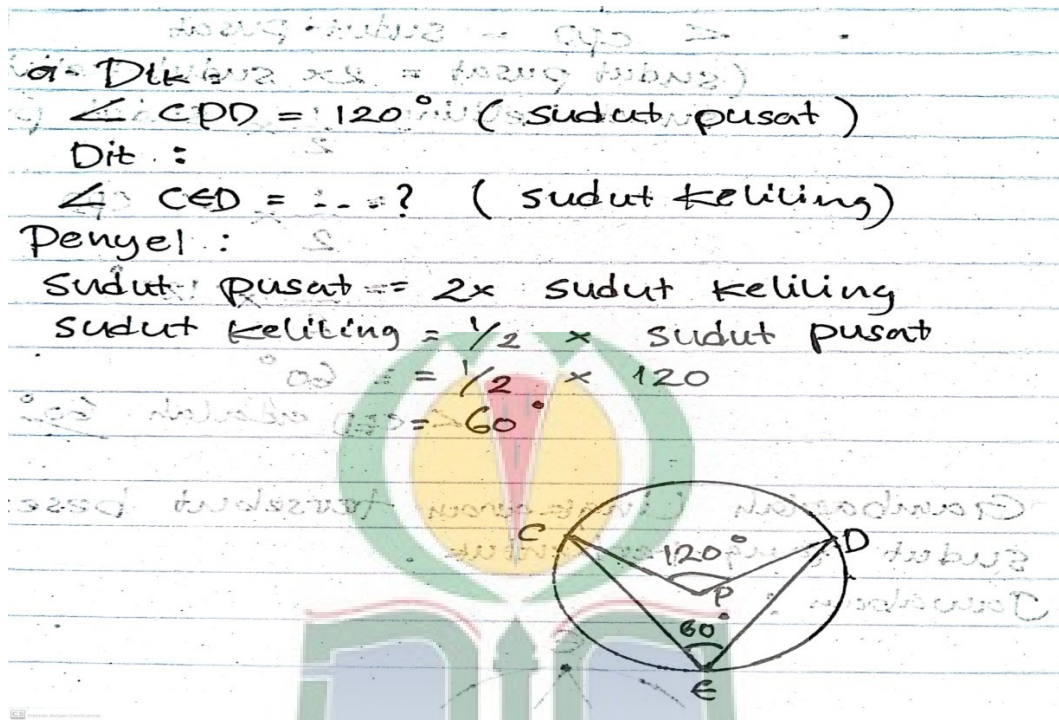 a. Dik :
∠ CPD = 120° (sudut pusat)
Dit :
∠ CED = ...? (sudut keliling)
Penyel :
Sudut pusat = 2x sudut keliling
Sudut keliling = 1/2 x sudut pusat
= 1/2 x 120
= 60°
C
120°
D
P
60°
E
CS